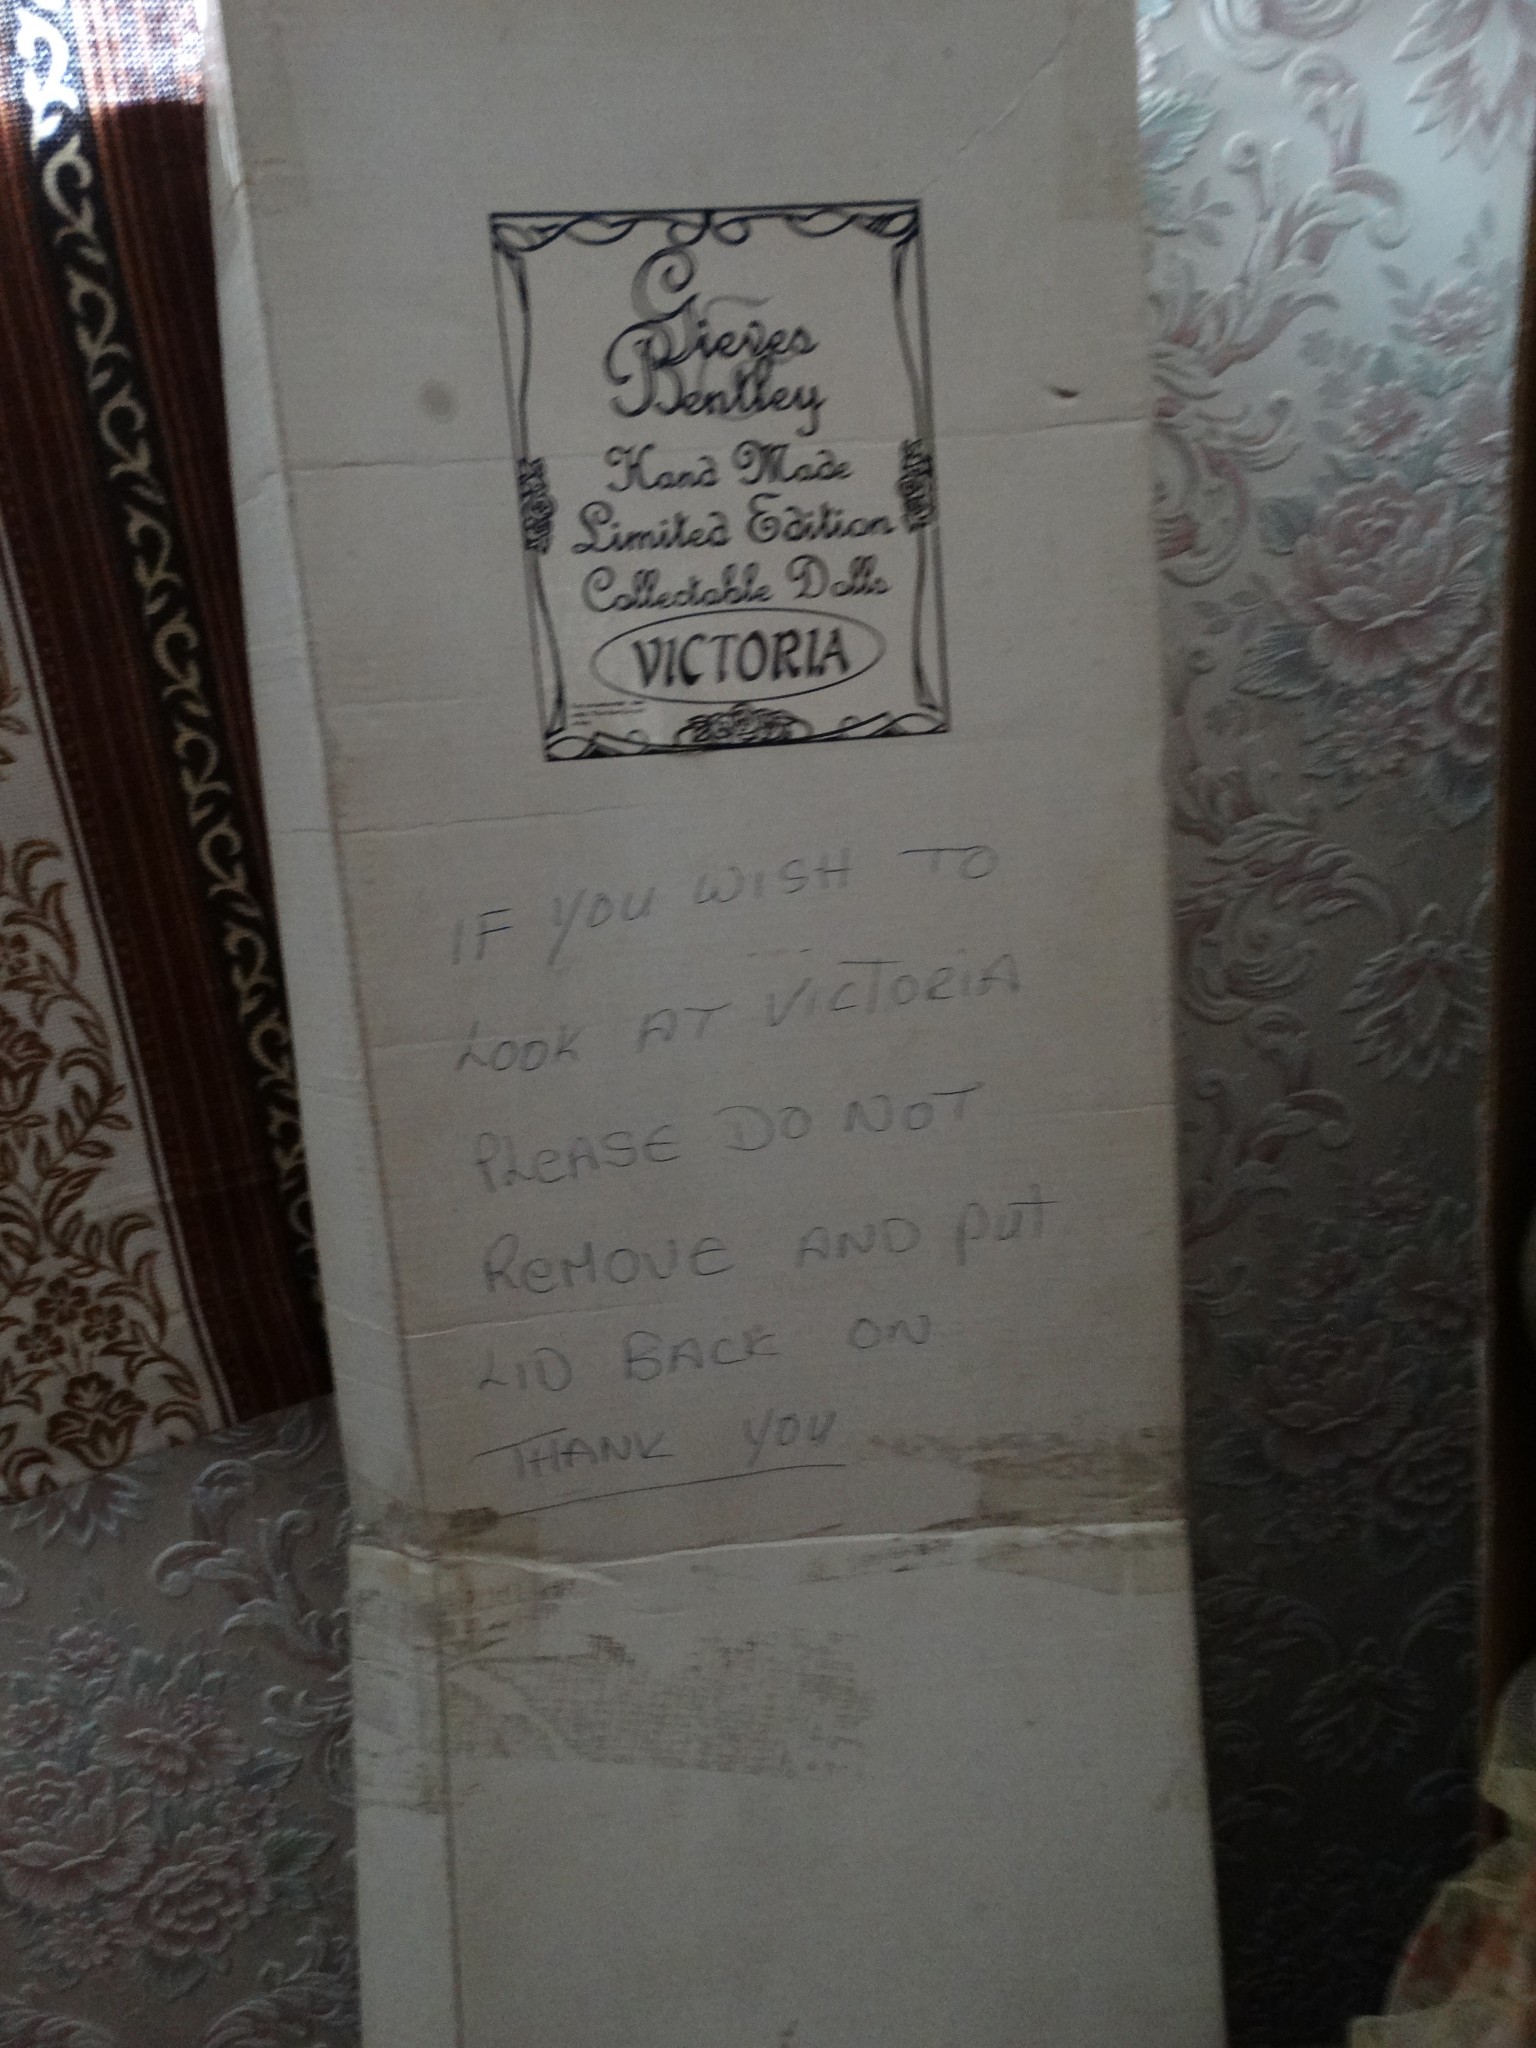 Gieves
Bentley
Hand Made
Limited Edition
Collectable Dolls
VICTORIA
IF YOU WISH TO
LOOK AT VICTORIA
PLEASE DO NOT
REMOVE AND PUT
LID BACK ON
THANK YOU